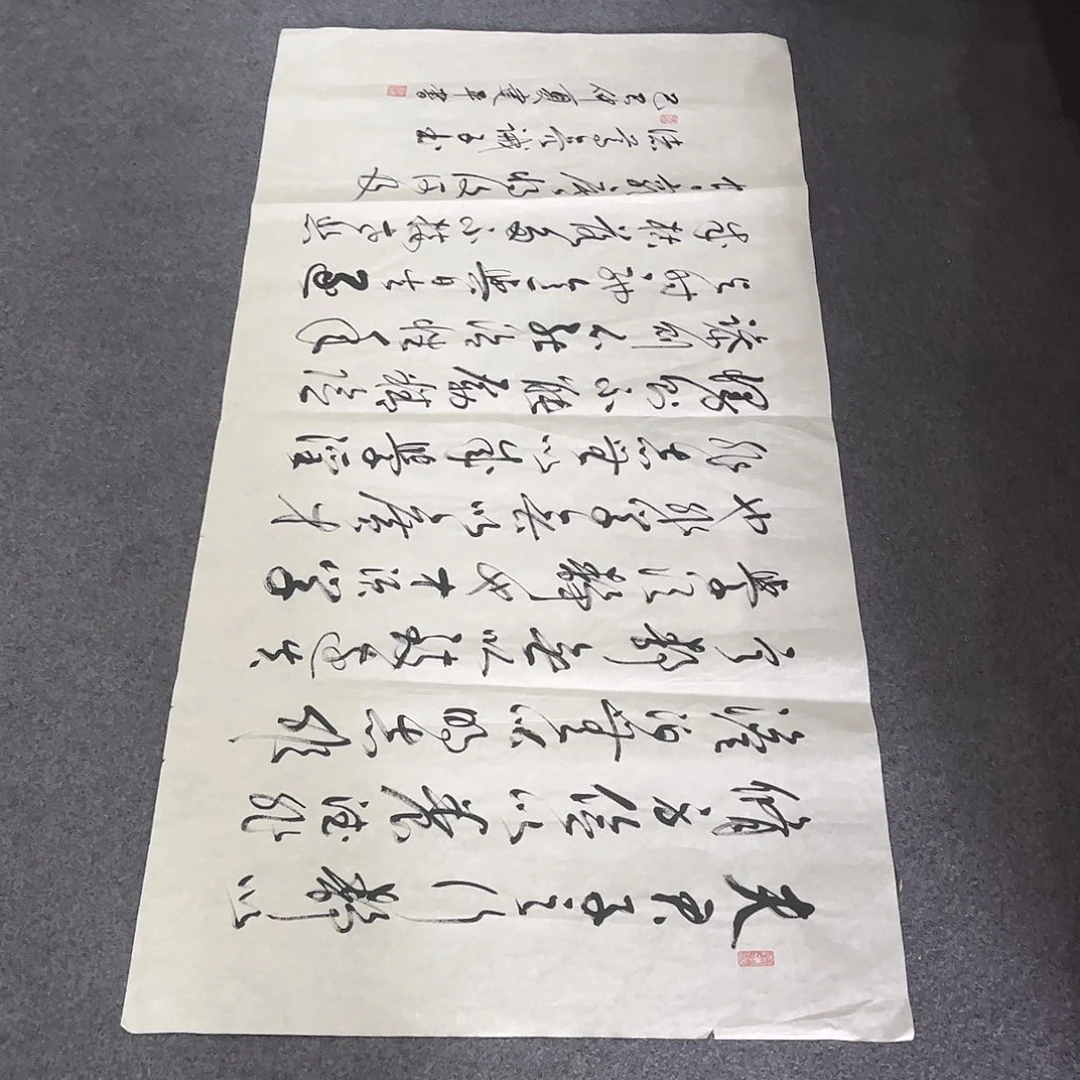 夫君子之行靜以
修身儉以養德非
澹泊無以明志非
寧靜無以致遠夫
學須靜也才須學
也非學無以廣才
非志無以成學淫
慢則不能勵精險
躁則不能治性年
與時馳意與日去遂
成枯落多不接世悲
守窮廬將復何及
諸葛亮誡子書
仲夏書